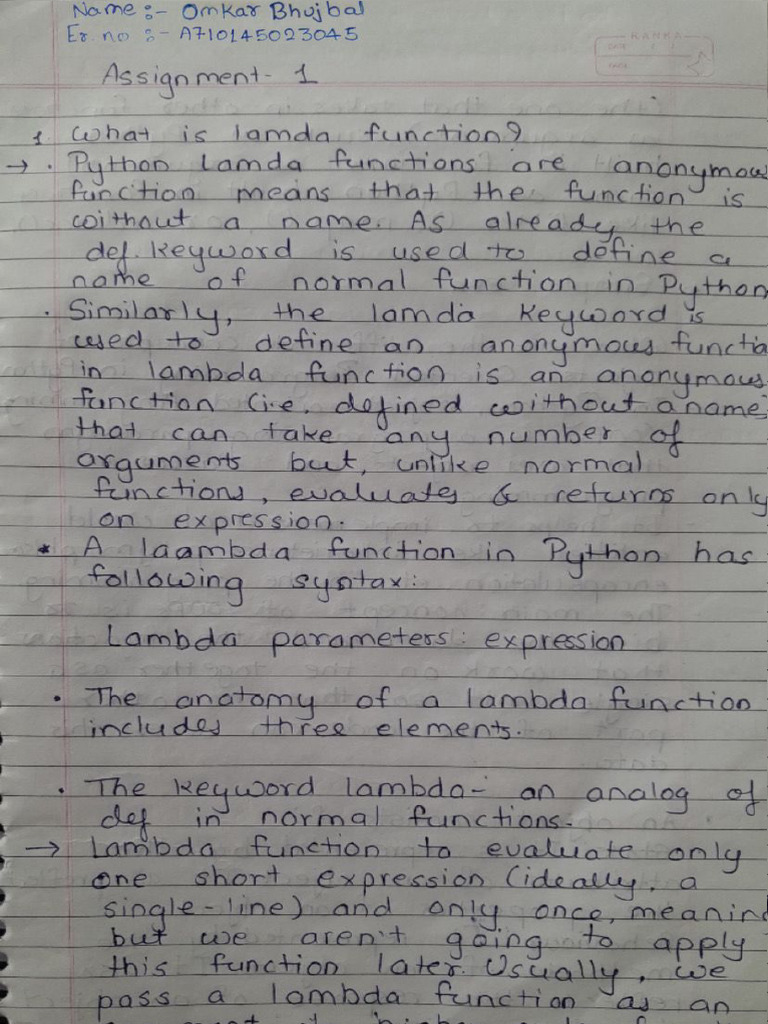 Name :- Omkar Bhujbal
Er. no :- A710145023045
KANHA
DATE
PAGE
Assignment- 1
1. What is lamda function?
→ . Python lamda functions are anonymous
function means that the function is
without a name. As already the
def. keyword is used to define a
name of normal function in Python
. Similarly, the lamda keyword is
used to define an anonymous functio
in lambda function is an anonymous
function (i.e. defined without a name)
that can take any number of
arguments but, unlike normal
functions, evaluates & returns only
on expression.
* A laambda function in Python has
following syntax:
Lambda parameters: expression
. The anatomy of a lambda function
includes three elements.
. The keyword lambda- an analog of
def in normal functions.
→ Lambda function to evaluate only
one short expression (ideally, a
single-line) and only once, meanin
but we aren't going to apply
this function later. Usually, we
pass a lambda function as an